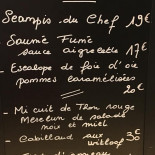 Scampis du Chef 19€
Saumé Fumé
sauce aigrelette 17€
- Escalope de foie d'oie
pommes caramélisées
20€
- Mi cuit de Thon rouge
Mesclun de salade
noix et miel
- Cabillaud aux
witloof